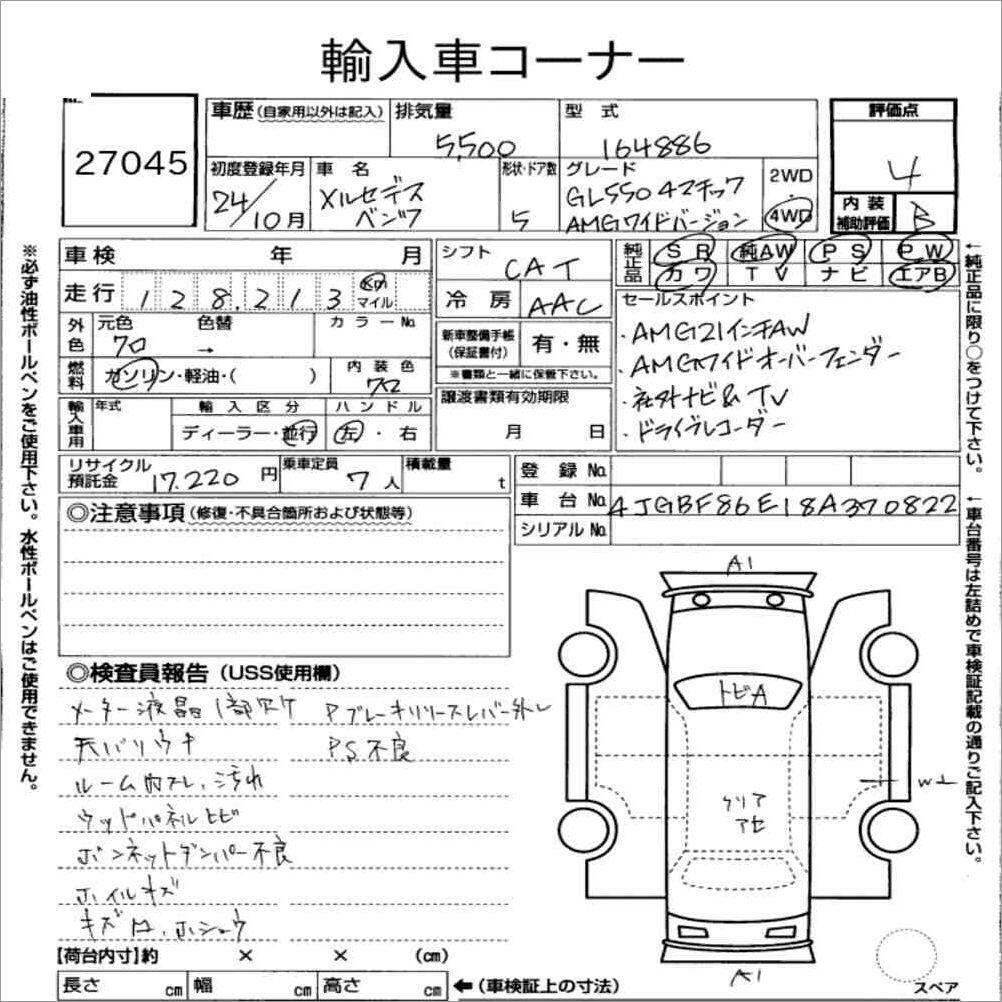 輸入車コーナー
27045
車歴 (自家用以外は記入)
排気量
5,500
型式
164886
評価点
4
初度登録年月
24/10月
車名
メルセデス
ベンツ
形状・ドア数
5
グレード
GL550 4マチック
AMGワイドバージョン
2WD
・
4WD
内装
補助評価
B
車検 年 月
シフト
CAT
純正品
SR 純AW PS PW
カワ TV ナビ エアB
走行 128,213 Km マイル
冷房 AAC
セールスポイント
・AMG21インチAW
・AMGワイドオーバーフェンダー
・社外ナビ&TV
・ドライブレコーダー
外色
元色 色替 カラーNo.
クロ →
新車整備手帳
(保証書付)
有・無
※書類と一緒に保管下さい。
燃料
ガソリン・軽油・( )
内装色
クロ
譲渡書類有効期限
月 日
輸入車用
年式 輸入区分 ハンドル
ディーラー・並行 左・右
リサイクル
預託金
17,220円
乗車定員
7人
積載量
t
登録No.
車台No. 4JGBF86E18A370822
シリアルNo.
◎注意事項 (修復・不具合箇所および状態等)
◎検査員報告 (USS使用欄)
メーター液晶1部欠ケ
Pブレーキリリースレバー外レ
天バリウキ
PS不良
ルーム内スレ、汚れ
ウッドパネルヒビ
ボンネットダンパー不良
ホイルキズ
A1
トビA
クリア
アセ
W
A1
スペア
【荷台内寸】約 × × (cm)
長さ cm 幅 cm 高さ cm
←(車検証上の寸法)
※必ず油性ボールペンをご使用下さい。水性ボールペンはご使用できません。
←純正品に限り○をつけて下さい。
←車台番号は左詰めで車検証記載の通りご記入下さい。